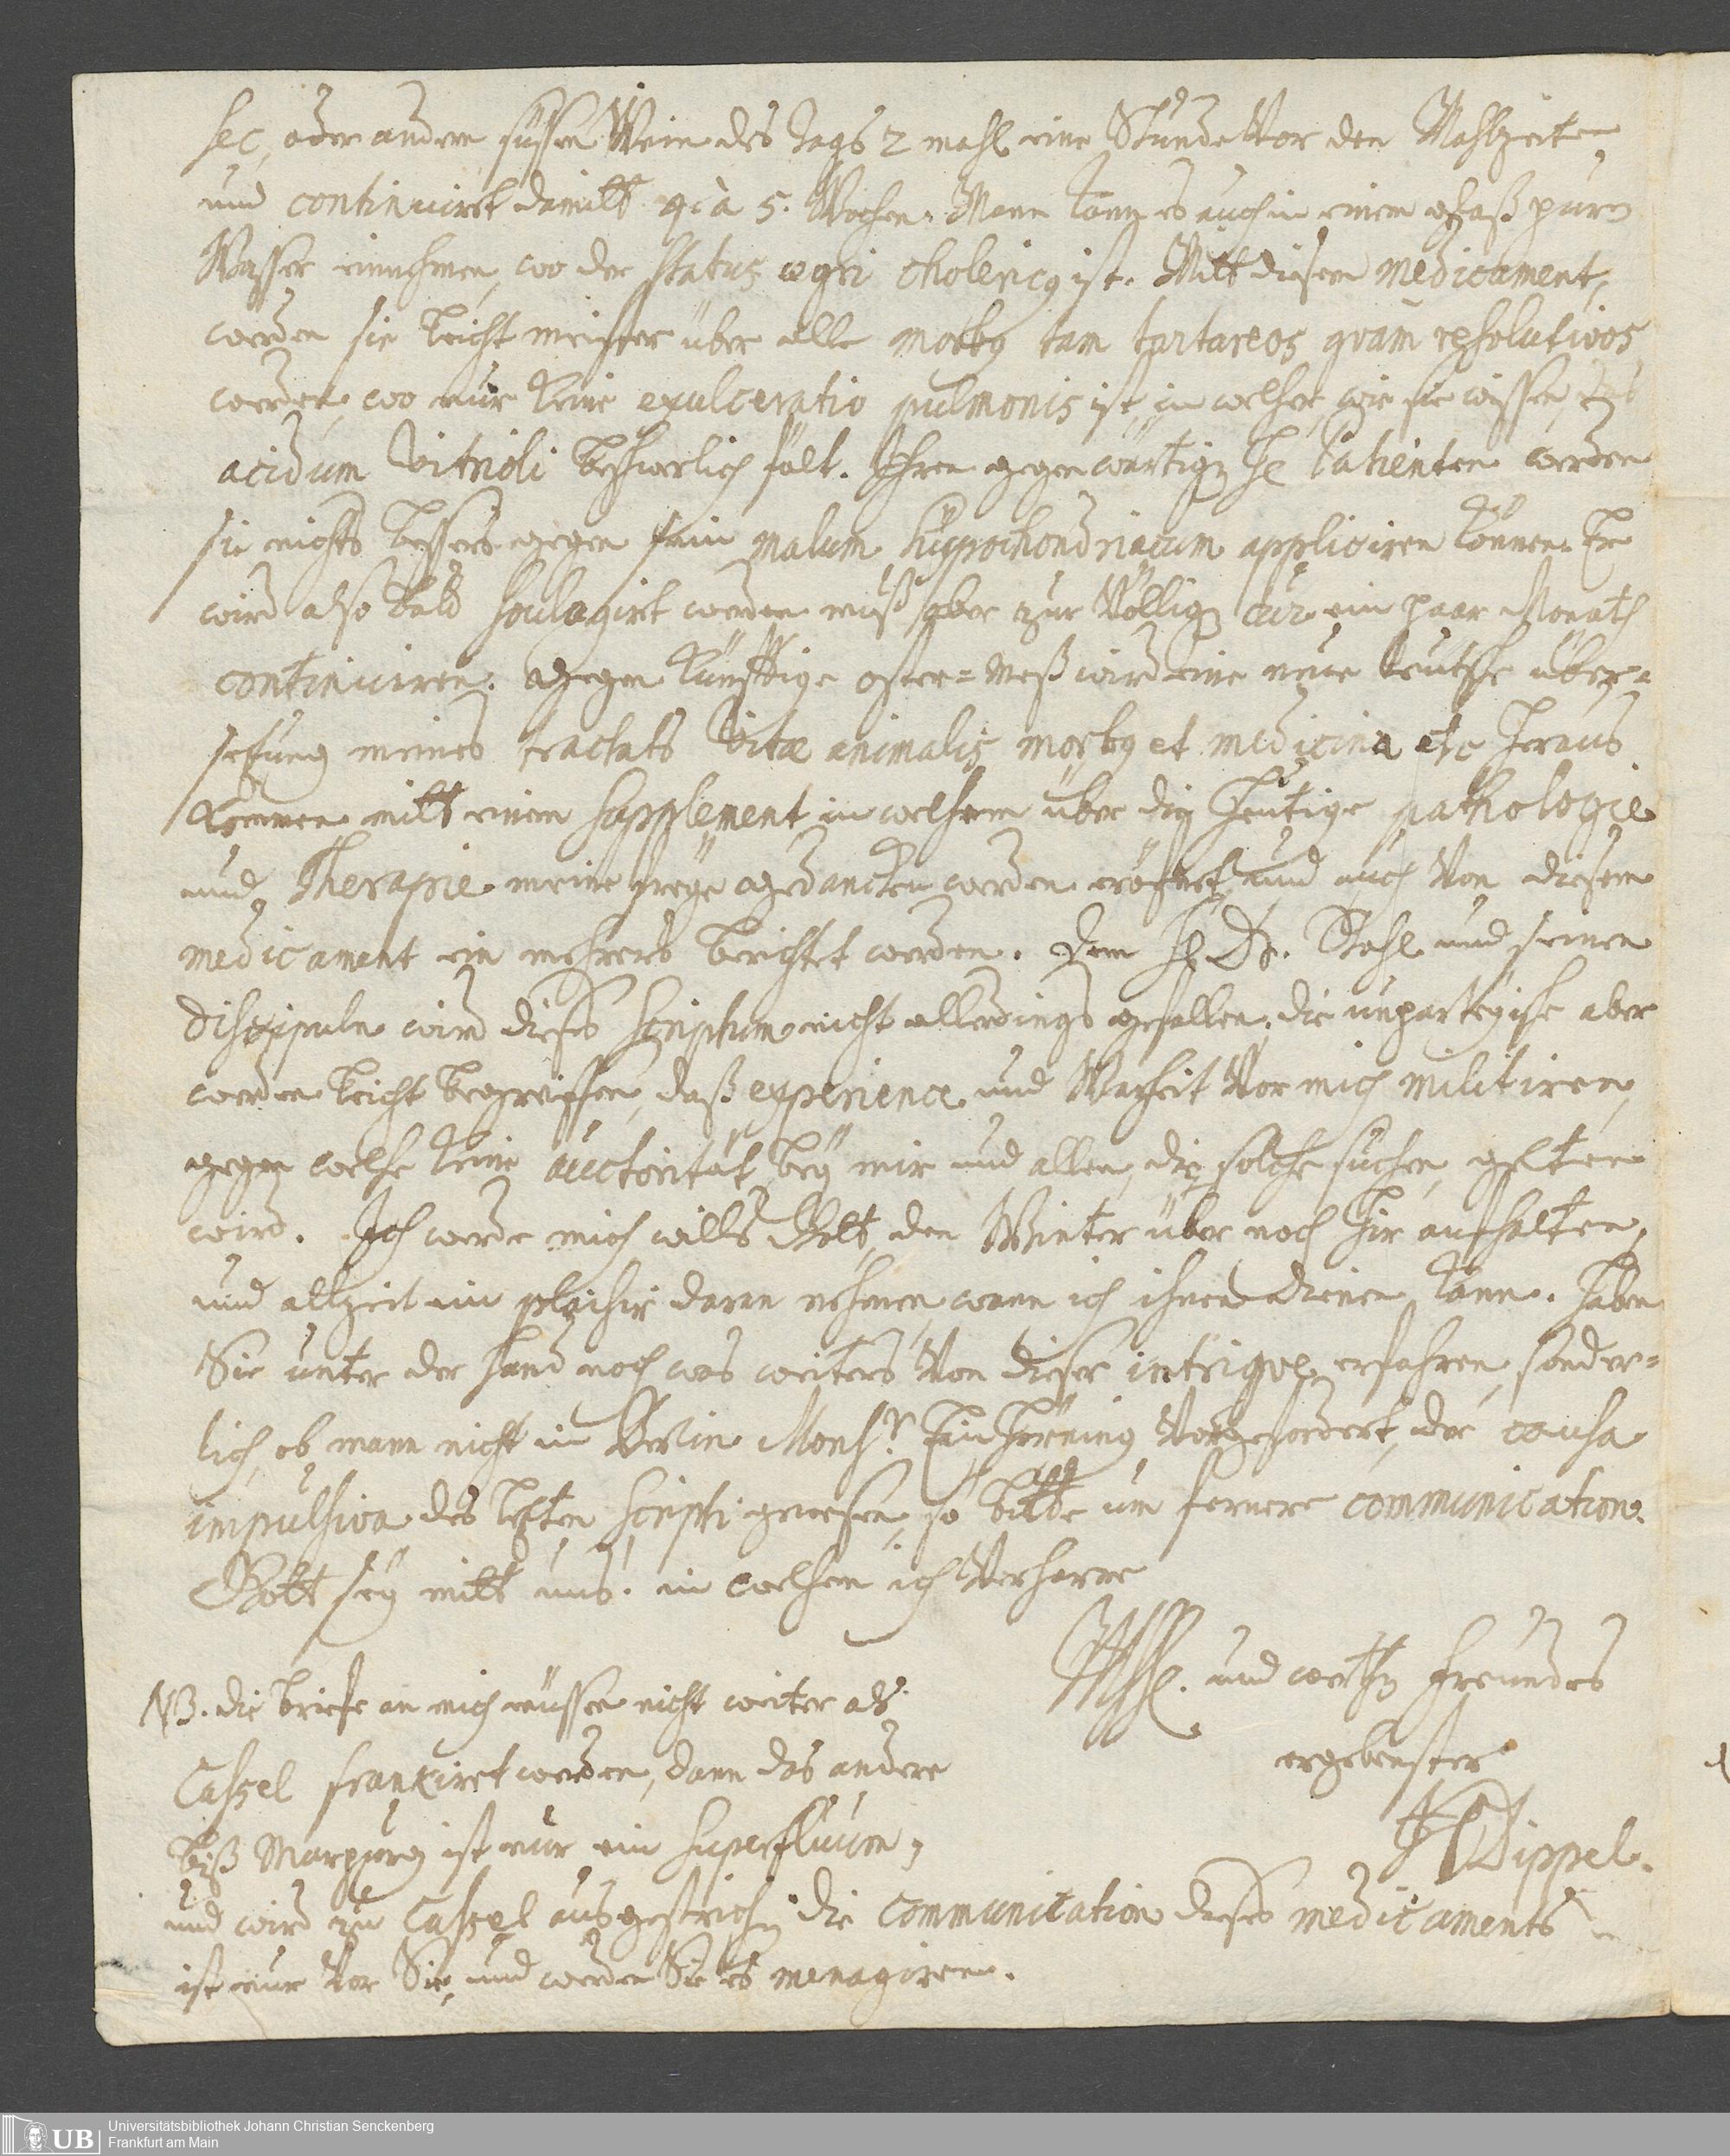 sec, oder andern süssen Wein des Tags 2 mahl eine Stunde Vor den Mahlzeiten
und continuirt damitt 4. à 5. Wochen. Mann kann es auch in einem glaß pure
Wasser einnehmen, wo der status ægri cholericus ist. Mitt diesem medicament,
werden sie leicht meister über alle morbos tam tartareos quam resolutivos
werden, wo nur keine exulceratio pulmonis ist, in welcher, wie sie wissen, das
acidum Vitrioli beschwerlich fält. Ihrem gegenwärtigen H. Patienten werden
sie nichts bessers gegen sein malum hypochondriacum appliciren können. Er
wird also bald soulagirt werden muß aber zur Völligen cur ein paar Monath
continuiren. Gegen künfftige oster-meß wird eine neue teutsche über-
setzung meines tractats Vitæ animalis morbus et medicina etc heraus
kommen mitt einem supplement in welchem über die heutige pathologie
und Therapie meine freye gedancken werden eröfnet und auch Von diesem
medicament ein mehrers berichtet werden. Dem H. Dr. Stahl und seinen
discipuln wird dieses scriptum nicht allerdings gefallen, die unpartheyische aber
werden leicht begreiffen, daß experience und Warheit Vor mich militiren,
gegen welche keine auctorität, bey mir und allen, die solche suchen, gelten
wird. Ich werde mich wills Gott, den Winter über noch hir aufhalten,
und allzeit ein plaisir daran nehmen, wann ich ihnen dienen kann. haben
Sie unter der hand noch was weiters Von dieser intrigue erfahren, sonder-
lich, ob mann nicht in Berlin Monsr. Vorgefordert, der causa
impulsiva des letzten scripti gewesen, so bitte um fernere communication.
Gott sey mitt uns. in welchem ich Verharre
und werthen Freundes
ergebenster
Dippel.
NB. die briefe an mich müssen nicht weiter als
Cassel frankiret werden, dann das andere
biß Marpurg ist nur ein superfluum,
und wird zu Cassel ausgestrichen. die communication dieses medicaments
ist nur Vor Sie, und werden Sie es menagiren.
UB Universitätsbibliothek Johann Christian Senckenberg
Frankfurt am Main